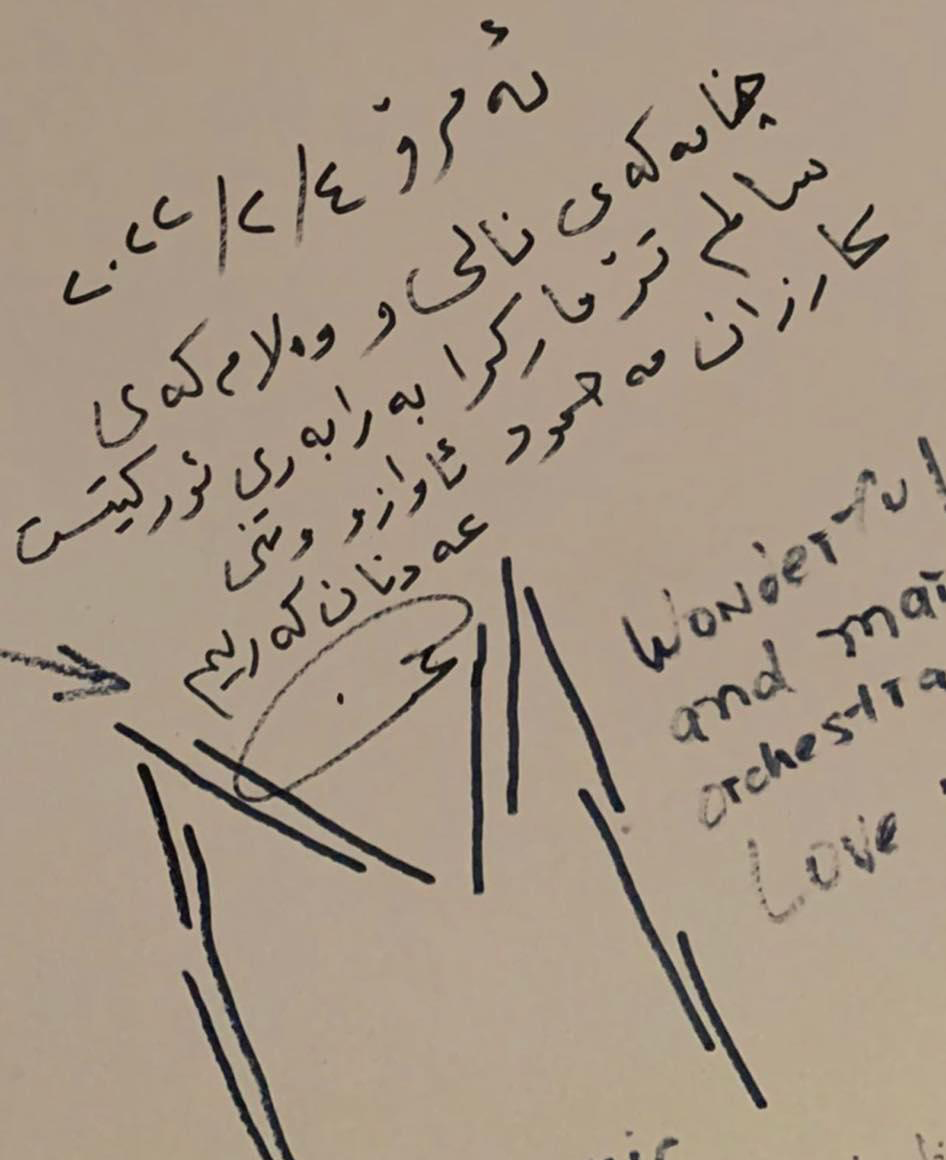 ئەمرۆ ٤/٢/٢٠٢٢
چامەکەی نالی و وەلامەکەی
سالم تۆمارکرا بە رابەری ئۆرکێست
کارزان مەحمود ئاوازو وتنی
عەدنان کەریم
Wonderful
and
orchestra
Love